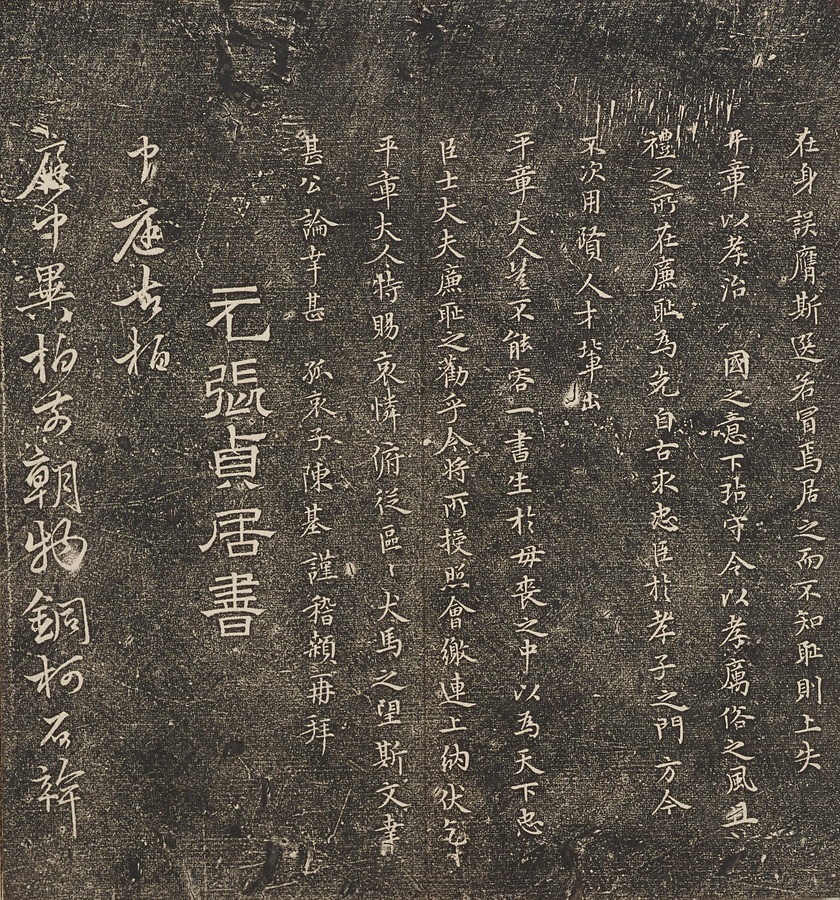 在身誤膺斯選若冒焉居之而不知耻則上失
平章以孝治　國之意下玷守令以孝厲俗之風且
禮之所在廉耻為先自古求忠臣於孝子之門方今
不次用賢人才輩出
平章大人豈不能容一書生於母喪之中以為天下忠
臣士大夫廉耻之勸乎今將所授照會繳連上納伏乞
平章大人特賜哀憐俯從區〻犬馬之望斯文幸
甚公論幸甚　孤哀子陳基謹稽顙再拜
元張貞居書
中庭古柏
庭中異柏前朝物銅柯石幹